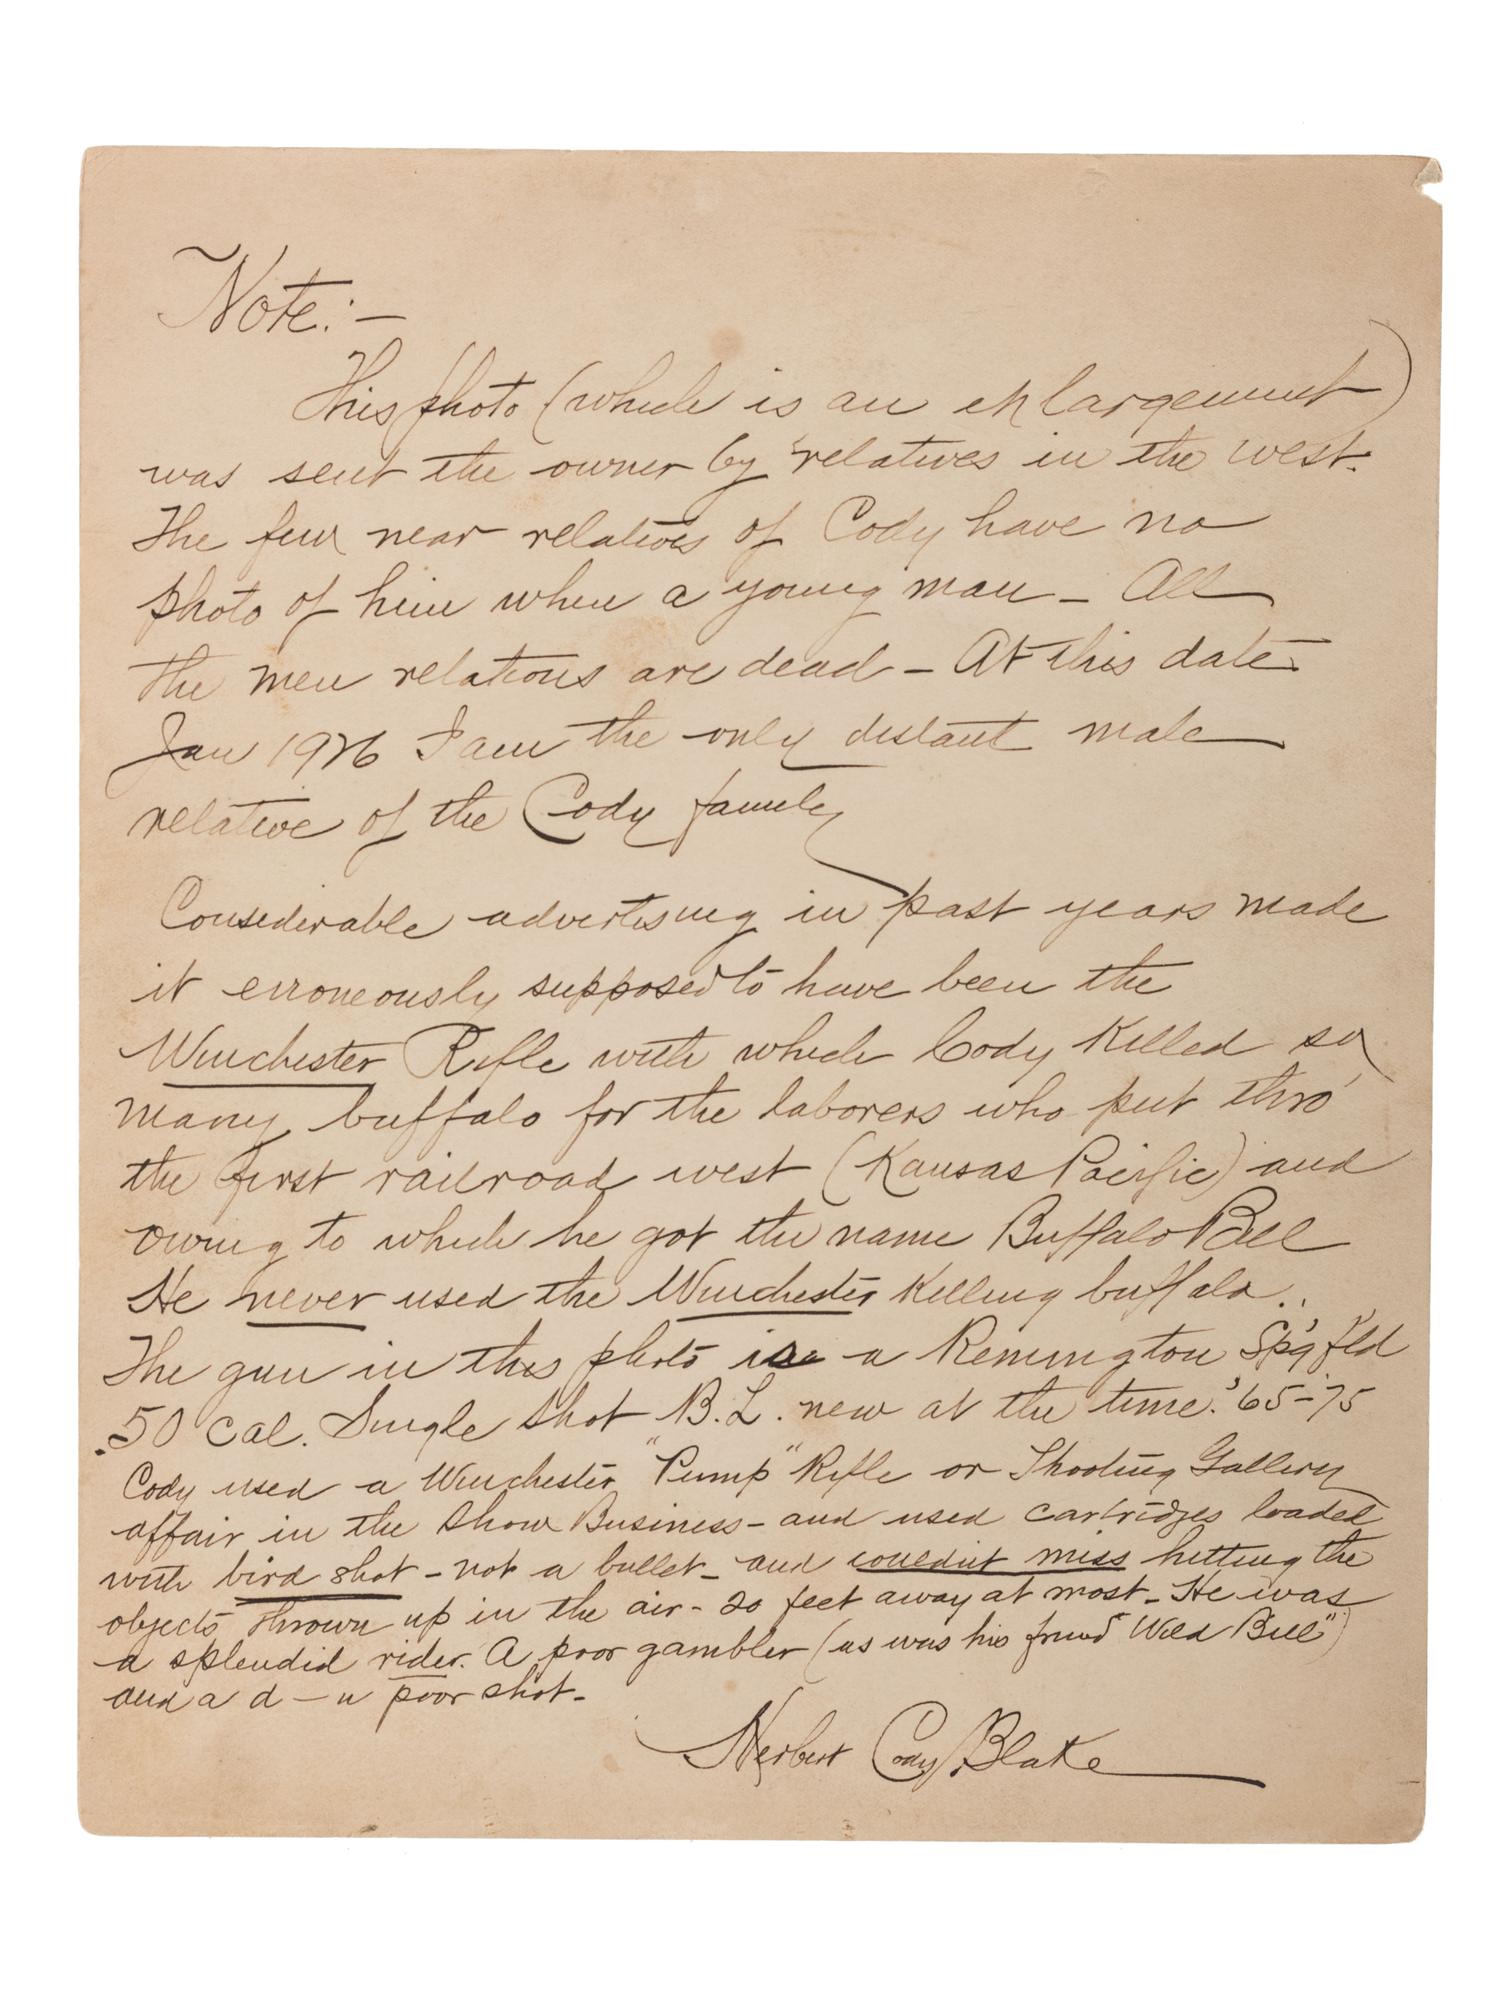 Note:—
This photo (which is an enlargement)
was sent the owner by relatives in the west.
The few near relatives of Cody have no
photo of him when a young man — All
the men relations are dead — At this date
Jan 1926 I am the only distant male
relative of the Cody family
Considerable advertising in past years made
it erroneously supposed to have been the
Winchester Rifle with which Cody killed so
many buffalo for the laborers who put thro'
the first railroad west (Kansas Pacific) and
owing to which he got the name Buffalo Bill
He never used the Winchester killing buffalo.
The gun in this photo is a Remington Sp'g'f'ld
.50 Cal. Single Shot B.L. new at the time. '65-'75
Cody used a Winchester "Pump" Rifle or Shooting Gallery
affair in the Show Business — and used cartridges loaded
with bird shot — not a bullet — and couldnt miss hitting the
objects thrown up in the air - 20 feet away at most — He was
a splendid rider. A poor gambler (as was his friend "Wild Bill")
and a d—n poor shot —
Herbert Cody Blake